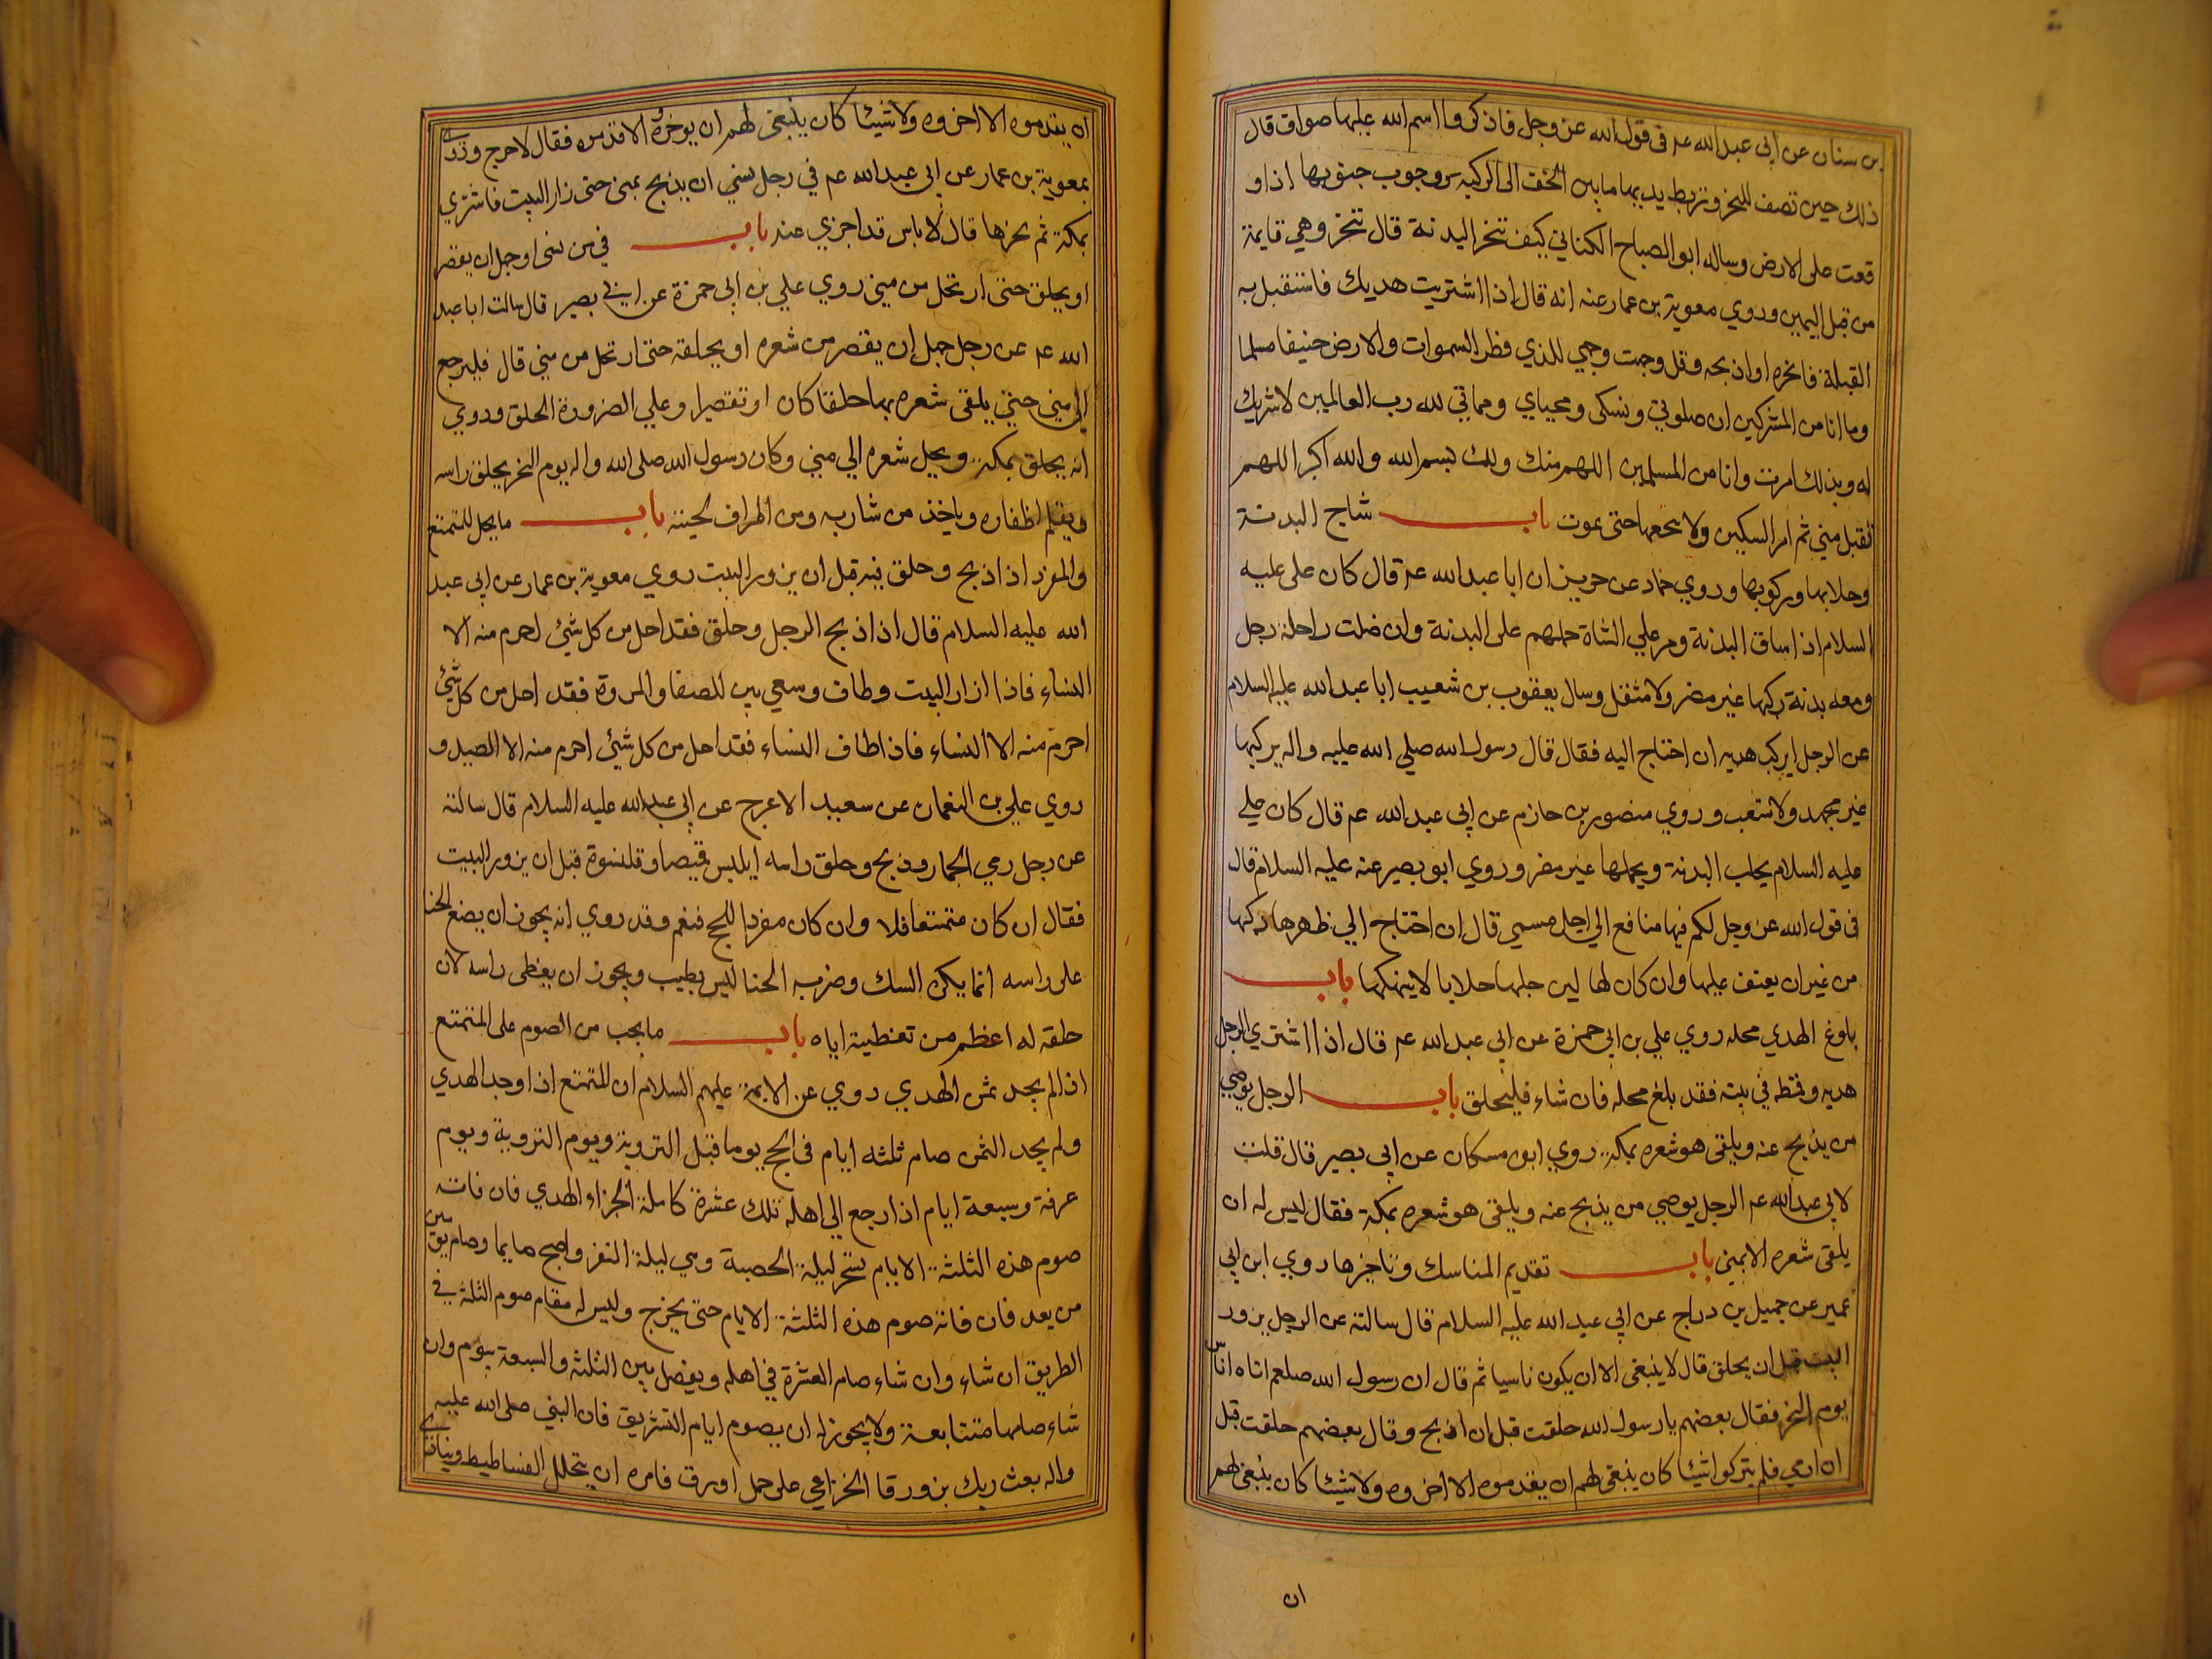 بن سنان عن ابي عبد الله عم في قول الله عز وجل فاذكروا اسم الله عليها صواف قال
ذلك حين تصف للنحر وتربط يديها ما بين الخف الى الركبة ووجوب جنوبها اذا و
قعت على الارض وساله ابو الصباح الكناني كيف تنحر البدنة قال تنحر وهي قايمة
من قبل اليمين وروي معوية بن عمار عنه انه قال اذا اشتريت هديك فاستقبل به
القبلة فانحره او اذبحه وقل وجهت وجهي للذي فطر السموات والارض حنيفا مسلما
وما انا من المشركين ان صلوتي ونسكى ومحياي ومماتي لله رب العالمين لا شريك
له وبذلك امرت وانا من المسلمين اللهم منك ولك بسم الله والله اكبر اللهم
تقبل مني ثم امر السكين ولا تنخعها حتى تموت باب نتاج البدنة
وحلابها وركوبها وروي حماد عن حريز ان ابا عبد الله عم قال كان على عليه
السلام اذا ساق البدنة ومر على المشاة حملهم على البدنة وان ضلت راحلة رجل
ومعه بدنة ركبها غير مضر ولا مثقل وسال يعقوب بن شعيب ابا عبد الله عليه السلام
عن الرجل ايركب هديه ان احتاج اليه فقال قال رسول الله صلي الله عليه واله يركبها
غير مجهد ولا متعب وروي منصور بن حازم عن ابي عبد الله عم قال كان علي
عليه السلام يحلب البدنة ويحملها غير مضر وروي ابو بصير عنه عليه السلام قال
في قول الله عز وجل لكم فيها منافع الي اجل مسمي قال ان احتاج الي ظهرها ركبها
من غير ان يعنف عليها وان كان لها لبن حلبها حلابا لا ينهكها باب
بلوغ الهدي محله روي علي بن ابي حمزة عن ابي عبد الله عم قال اذا اشتري الرجل
هديه وقمطه في بيته فقد بلغ محله فان شاء فليحلق باب الرجل يوصي
من يذبح عنه ويلقى هو شعره بمكة روي ابن مسكان عن ابي بصير قال قلت
لابي عبد الله عم الرجل يوصي من يذبح عنه ويلقى هو شعره بمكة فقال ليس له ان
يلقى شعره الا بمني باب تقديم المناسك وتاخيرها روي ابن ابي
عمير عن جميل بن دراج عن ابي عبد الله عليه السلام قال سالته عن الرجل يزور
البيت قبل ان يحلق قال لا ينبغي الا ان يكون ناسيا ثم قال ان رسول الله صلعم اتاه اناس
يوم النحر فقال بعضهم يا رسول الله حلقت قبل ان اذبح وقال بعضهم حلقت قبل
ان ارمي فلم يتركوا شيئا كان ينبغى لهم ان يقدموه الا اخروه ولا شيئا كان ينبغى لهم
ان
ان يقدموه الا اخروه ولا شيئا كان ينبغى لهم ان يوخروه الا قدموه فقال لا حرج وروي
معوية بن عمار عن ابي عبد الله عم في رجل نسي ان يذبح بمنى حتى زار البيت فاشتري
بمكة ثم نحرها قال لا باس قد اجزي عنه باب في من نسى او جهل ان يقصر
او يحلق حتى ارتحل من مني روي علي بن ابي حمزة عن ابي بصير قال سالت ابا عبد
الله عم عن رجل جهل ان يقصر من شعره او يحلقه حتى ارتحل من مني قال فليرجع
الي مني حتى يلقى شعره بها حلقا كان او تقصيرا وعلي الصرورة الحلق وروي
انه يحلق بمكة ويحمل شعره الي مني وكان رسول الله صلى الله واله يوم النحر يحلق راسه
ويقلم اظفاره وياخذ من شاربه ومن اطراف لحيته باب ما يحل للمتمتع
والمفرد اذا ذبح وحلق قبل ان يزور البيت روي معوية بن عمار عن ابي عبد
الله عليه السلام قال اذا ذبح الرجل وحلق فقد احل من كل شيء احرم منه الا
النساء فاذا زار البيت وطاف وسعي بين الصفا والمروة فقد احل من كل شيء
احرم منه الا النساء فاذا طاف النساء فقد احل من كل شيء احرم منه الا الصيد و
روي علي بن النعمان عن سعيد الاعرج عن ابي عبد الله عليه السلام قال سالته
عن رجل رمي الجمار وذبح وحلق راسه ايلبس قميصا وقلنسوة قبل ان يزور البيت
فقال ان كان متمتعا فلا وان كان مفردا للحج فنعم وقد روي انه يجوز ان يضع الحنا
على راسه انما يكره السك وضربه الحنا ليس بطيب ويجوز ان يغطى راسه لان
حلقه له اعظم من تغطيته اياه باب ما يجب من الصوم على المتمتع
اذا لم يجد ثمن الهدي روي عن الايمة عليهم السلام ان المتمتع اذا وجد الهدي
ولم يجد الثمن صام ثلثه ايام في الحج يوما قبل التروية ويوم التروية ويوم
عرفة وسبعة ايام اذا رجع الي اهله تلك عشرة كاملة لجزاء الهدي فان فاته
صوم هذه الثلثة الايام تسحر ليلة الحصبة وهي ليلة النفر واصبح صايما وصام يومين
من بعد فان فاته صوم هذه الثلثة الايام حتى يخرج وليس له مقام صوم الثلثة في
الطريق ان شاء وان شاء صام العشرة في اهله ويفصل بين الثلثه والسبعة بيوم وان
شاء صامها متتابعة ولا يجوز له ان يصوم ايام التشريق فان النبي صلى الله عليه
واله بعث بديل بن ورقا الخزاعي على جمل اورق فامره ان يتخلل الفساطيط وينادي